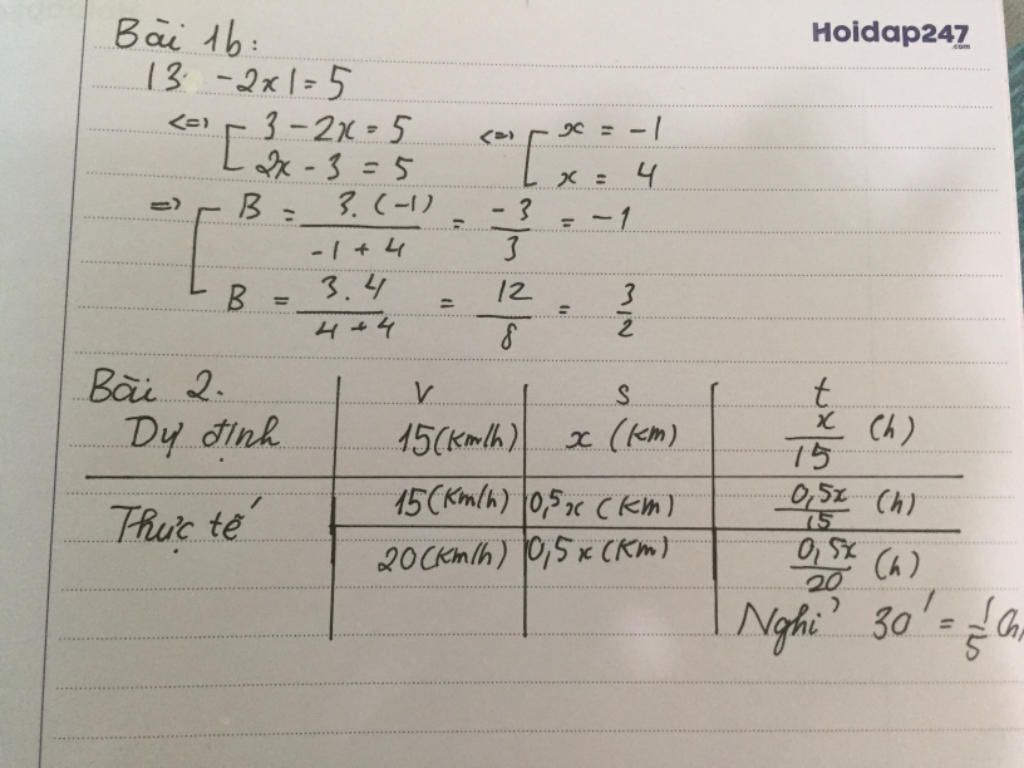 Hoidap247
.com
Bài 1b:
|3 -2x| = 5
<=> [ 3 - 2x = 5 <=> [ x = -1
2x - 3 = 5 x = 4
=> [ B = 3.(-1) / -1 + 4 = -3/3 = -1
B = 3.4 / 4 + 4 = 12/8 = 3/2
Bài 2. V S t
Dự định 15(km/h) x (km) x/15 (h)
Thực tế 15(km/h) 0,5x (km) 0,5x/15 (h)
20(km/h) 0,5x (km) 0,5x/20 (h)
Nghỉ 30' = 1/5 (h)